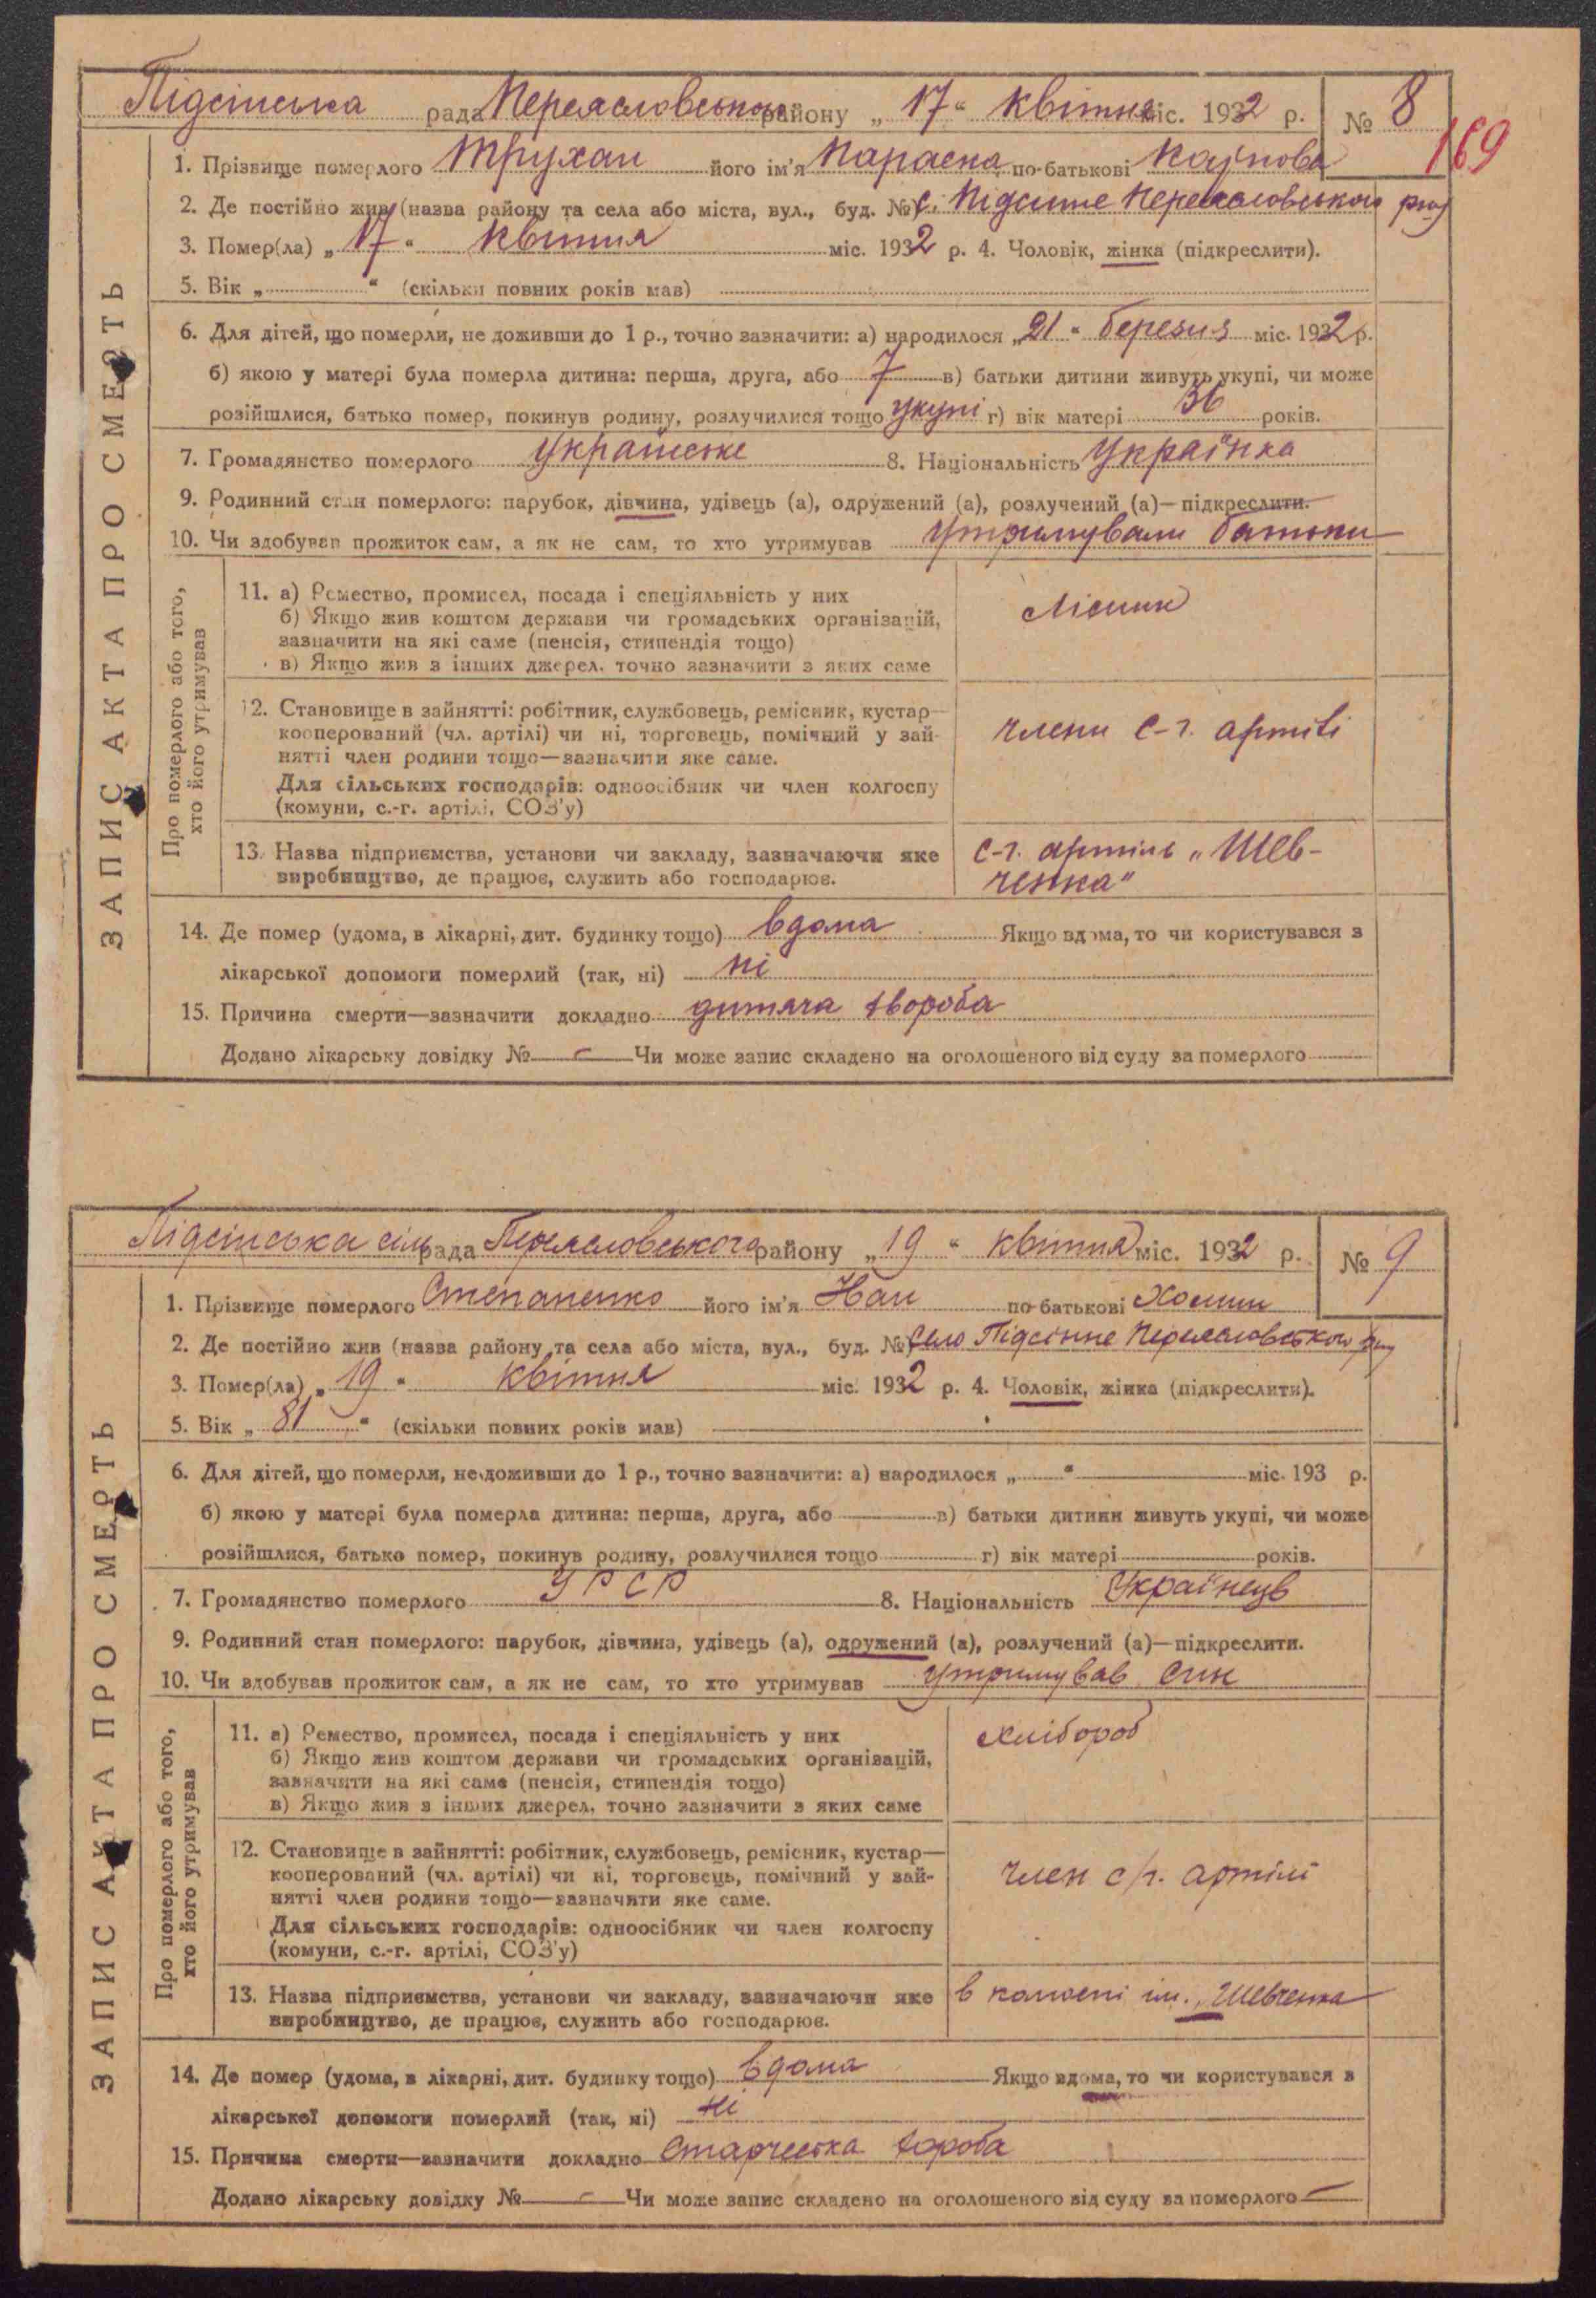 Підсінська рада Переяславського району „ 17 “ квітня міс. 1932 р. № 8
169
1. Прізвище померлого Трухан його ім'я Параска по-батькові
2. Де постійно жив (назва району та села або міста, вул., буд. №) с. Підсінне Переяславського р-ну
3. Помер(ла) „ 17 “ квітня міс. 1932 р. 4. Чоловік, жінка (підкреслити).
5. Вік „ “ (скільки повних років мав)
6. Для дітей, що померли, не доживши до 1 р., точно зазначити: а) народилося „ 21 “ березня міс. 1932 р.
б) якою у матері була померла дитина: перша, друга, або 7 в) батьки дитини живуть укупі, чи може
розійшлися, батько помер, покинув родину, розлучилися тощо укупі г) вік матері 36 років.
7. Громадянство померлого українське 8. Національність українка
9. Родинний стан померлого: парубок, дівчина, удівець (а), одружений (а), розлучений (а)—підкреслити.
10. Чи здобував прожиток сам, а як не сам, то хто утримував утримували батьки
ЗАПИС АКТА ПРО СМЕРТЬ
Про померлого або того, хто його утримував
11. а) Ремество, промисел, посада і спеціяльність у них
б) Якщо жив коштом держави чи громадських організацій,
зазначити на які саме (пенсія, стипендія тощо)
в) Якщо жив з інших джерел, точно зазначити з яких саме
Лісник
12. Становище в зайнятті: робітник, службовець, ремісник, кустар—
кооперований (чл. артілі) чи ні, торговець, помічний у зай-
нятті член родини тощо—зазначити яке саме.
Для сільських господарів: одноосібник чи член колгоспу
(комуни, с.-г. артілі, СОЗ'у)
члени с-г. артілі
13. Назва підприємства, установи чи закладу, зазначаючи яке
виробництво, де працює, служить або господарює.
с-г. артіль „Шев-
ченка“
14. Де помер (удома, в лікарні, дит. будинку тощо) вдома Якщо вдома, то чи користувався з
лікарської допомоги померлий (так, ні) ні
15. Причина смерти—зазначити докладно дитяча хвороба
Додано лікарську довідку № — Чи може запис складено на оголошеного від суду за померлого
Підсінська сіль рада Переяславського району „ 19 “ квітня міс. 1932 р. № 9
1. Прізвище померлого Степаненко його ім'я по-батькові Хомич
2. Де постійно жив (назва району та села або міста, вул., буд. №) село Підсінне Переяславського р-ну
3. Помер(ла) „ 19 “ квітня міс. 1932 р. 4. Чоловік, жінка (підкреслити).
5. Вік „ 81 “ (скільки повних років мав)
6. Для дітей, що померли, не доживши до 1 р., точно зазначити: а) народилося „ “ міс. 193 р.
б) якою у матері була померла дитина: перша, друга, або в) батьки дитини живуть укупі, чи може
розійшлися, батько помер, покинув родину, розлучилися тощо г) вік матері років.
7. Громадянство померлого УРСР 8. Національність Українець
9. Родинний стан померлого: парубок, дівчина, удівець (а), одружений (а), розлучений (а)—підкреслити.
10. Чи здобував прожиток сам, а як не сам, то хто утримував утримував син
ЗАПИС АКТА ПРО СМЕРТЬ
Про померлого або того, хто його утримував
11. а) Ремество, промисел, посада і спеціяльність у них
б) Якщо жив коштом держави чи громадських організацій,
зазначити на які саме (пенсія, стипендія тощо)
в) Якщо жив з інших джерел, точно зазначити з яких саме
хлібороб
12. Становище в зайнятті: робітник, службовець, ремісник, кустар—
кооперований (чл. артілі) чи ні, торговець, помічний у зай-
нятті член родини тощо—зазначити яке саме.
Для сільських господарів: одноосібник чи член колгоспу
(комуни, с.-г. артілі, СОЗ'у)
член с/г. артілі
13. Назва підприємства, установи чи закладу, зазначаючи яке
виробництво, де працює, служить або господарює.
в колгоспі ім. Шевченка
14. Де помер (удома, в лікарні, дит. будинку тощо) вдома Якщо вдома, то чи користувався з
лікарської допомоги померлий (так, ні) ні
15. Причина смерти—зазначити докладно Старческа хороба
Додано лікарську довідку № — Чи може запис складено на оголошеного від суду за померлого —